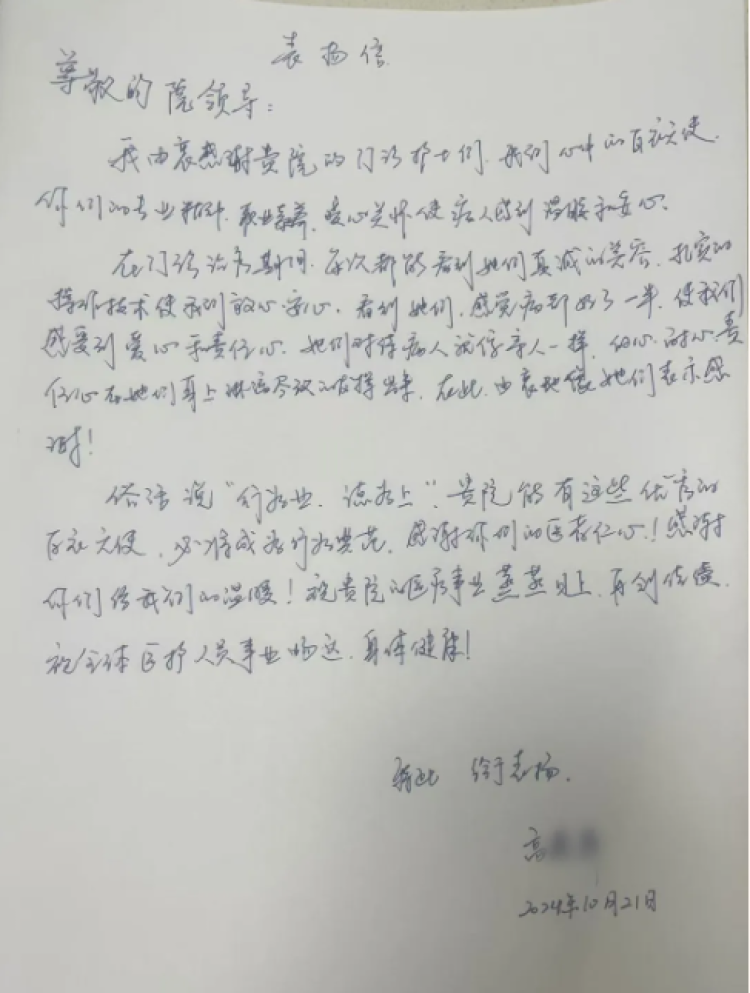 表扬信
尊敬的院领导：
我由衷感谢贵院的门诊护士们，我们心中的白衣天使，
你们的专业精神，职业素养，爱心关怀使病人感到温暖和安心。
在门诊治疗期间，每次都能看到她们真诚的笑容，扎实的
操作技术使我们放心安心，看到她们，感觉病都好了一半，使我们
感受到爱心和责任心，她们对待病人就像亲人一样，细心，耐心，责
任心在她们身上淋漓尽致的发挥出来，在此，由衷地像她们表示感
谢！
俗话说“行为业，德为上”，贵院能有这些优秀的
白衣天使，必将成为行为典范，感谢你们的医者仁心！感谢
你们给我们的温暖！祝贵院的医疗事业蒸蒸日上，再创佳绩，
祝全体医护人员事业畅达，身体健康！
特此 给予表扬，
高
2024年10月21日